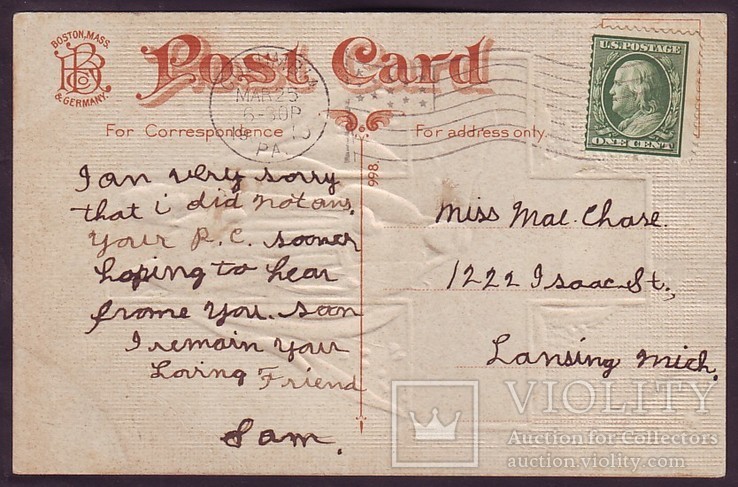 BOSTON, MASS.
BR Co
& GERMANY.
Post Card
MAR 25
6-30P
PA.
U.S. POSTAGE
ONE CENT
For Correspondence
For address only.
998.
I an very sorry
that i did not ans.
Your P.C. sooner
hoping to hear
frome You. soon
I remain your
Loving Friend
Sam.
Miss Mae. Chase.
1222 Isaac St.,
Lansing Mich.
VIOLITY
Auction for Collectors
auction.violity.com